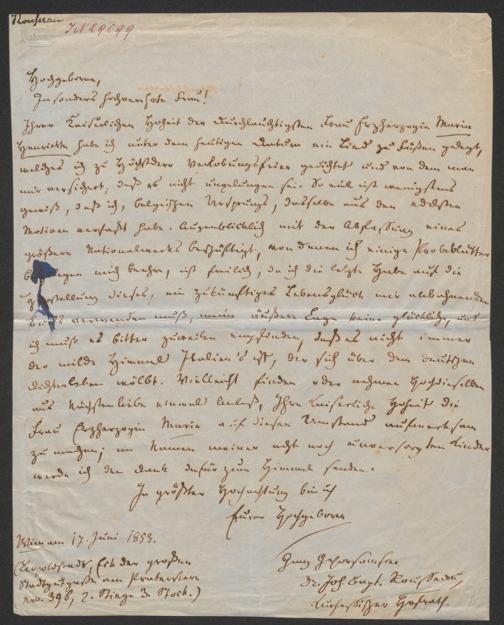 Rousseau
IN 29099
Hochgeborne,
Insonders hochverehrte Frau!
Ihrer Kaiserlichen Hoheit der Durchlauchtigsten Frau Erzherzogin Marie
Henriette habe ich unter dem heutigen Datum ein Lied zu Füßen gelegt,
welches ich zu Höchstderen Verlobungsfeier gedichtet und von dem man
mir versichert, daß es nicht mislungen sei. So viel ist wenigstens
gewiß, daß ich, belgischen Ursprungs, dasselbe aus den edelsten
Motiven verfaßt habe. Augenblicklich mit der Abfassung eines
größeren Nationalwerks beschäftigt, von denen ich einige Probeblätter
mich beehre, ist freilich, da ich die letzte Habe auf die
Herstellung dieses, ein zukünftiges Lebensglück mir anbahnenden
verwenden muß, meine äußere Lage keine glückliche, und
ich muß es bitter zuweilen empfinden, daß es nicht immer
der milde Himmel Italien's ist, der sich über dem deutschen
Dichterleben wölbt. Vielleicht finden oder nehmen Hochdieselben
aus Nächstenliebe einmal Anlaß, Ihre Kaiserliche Hoheit die
Frau Erzherzogin Marie auf diesen Umstand aufmerksam
zu machen; im Namen meiner acht noch unversorgten Kinder
werde ich den Dank dafür zum Himmel senden.
In größter Hochachtung bin ich
Eurer Hochgeboren
Wien am 17. Juni 1853.
(Leopoldstadt, Eck der großen
Stadtgutgasse am Praterstern
Nro. 396, 2. Stiege 3. Stock.)
ganz gehorsamster
Dr. Joh. Bapt. Rousseau,
Hofrath.